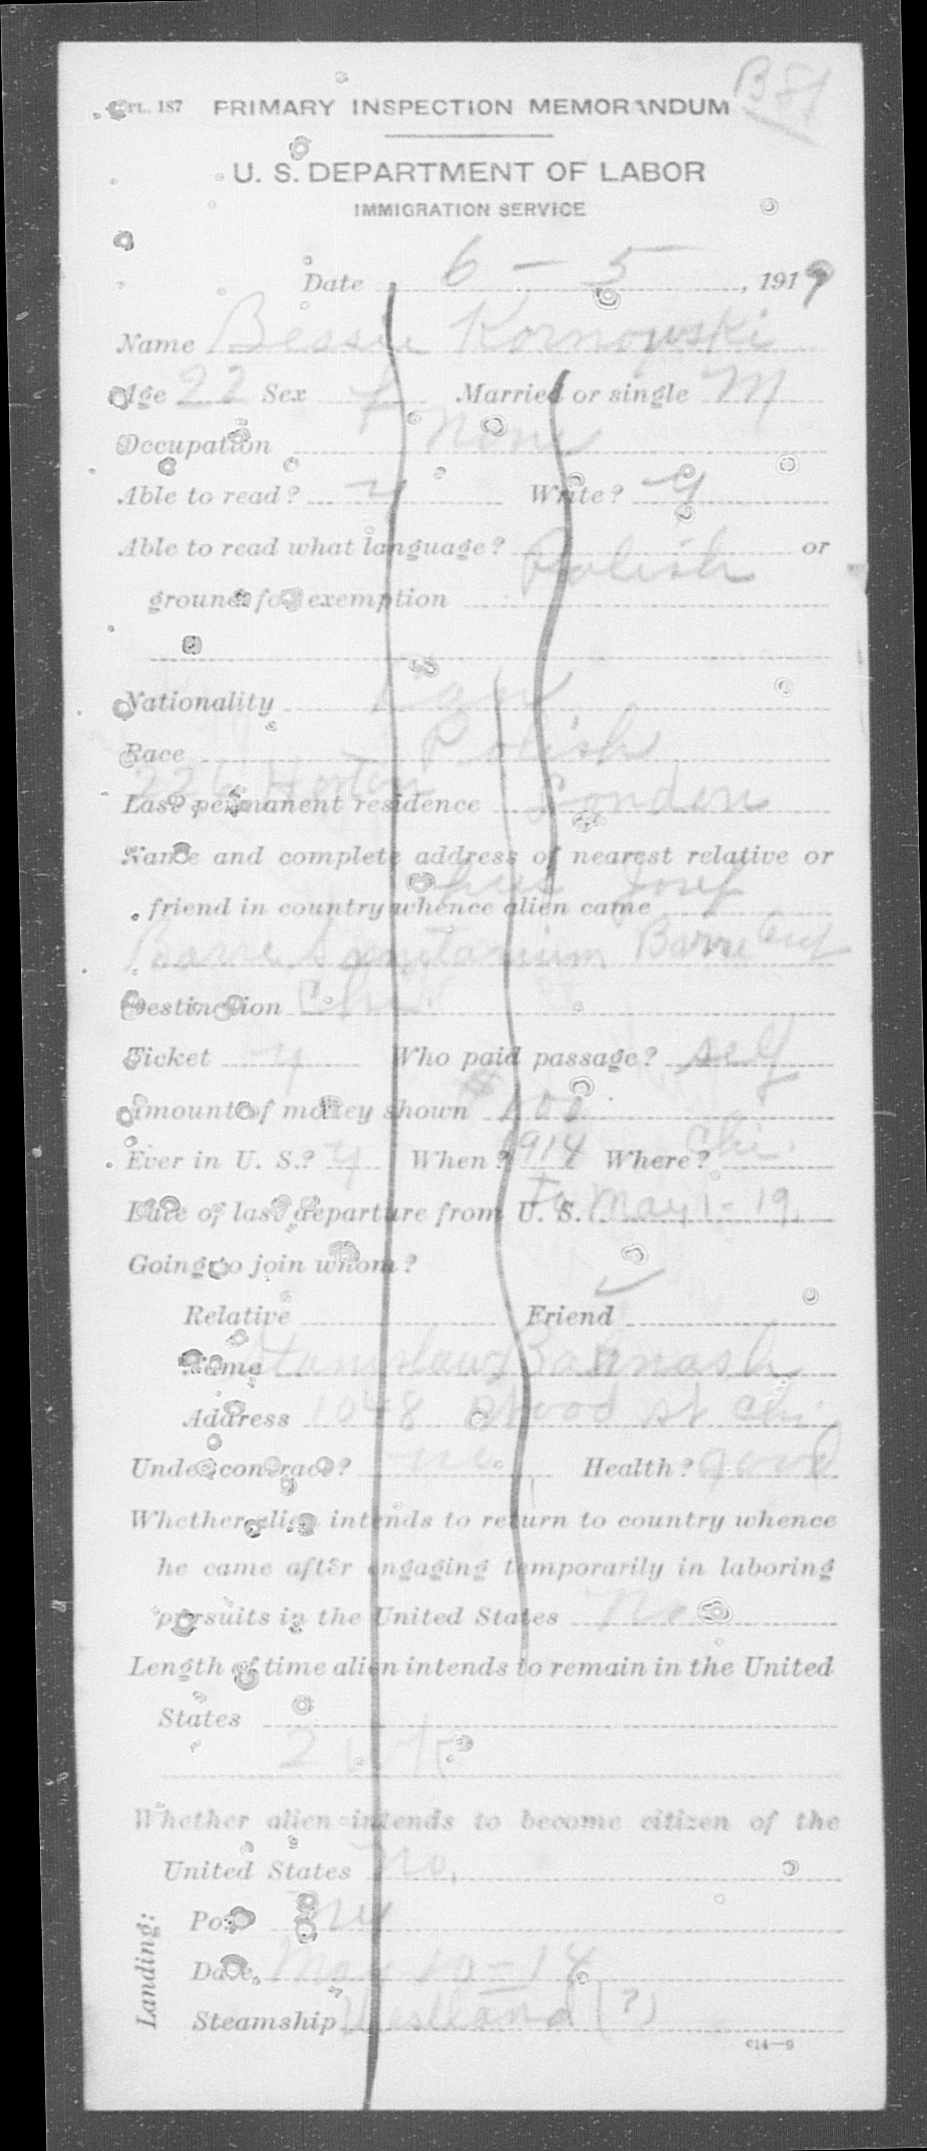 B 81
187 PRIMARY INSPECTION MEMORANDUM
U. S. DEPARTMENT OF LABOR
IMMIGRATION SERVICE
Date 6 - 5, 1919
Name Bessie Kornowski
Age 22 Sex f Married or single M
Occupation None
Able to read? y Write? y
Able to read what language? Polish or
ground for exemption
Nationality
Race Polish
226 Horton
Last permanent residence London
Name and complete address of nearest relative or
friend in country whence alien came Josef
Barre Sanitarium Barre
Destination Chi
Ticket y Who paid passage? self
Amount of money shown $100
Ever in U. S.? y When? 1914 Where? Chi.
Date of last departure from U. S. To May 1 - 19.
Going to join whom?
Relative Friend ✓
Name Stanislaw
Address 1048 Wood St Chi.
Under contract? no Health? good
Whether alien intends to return to country whence
he came after engaging temporarily in laboring
pursuits in the United States No
Length of time alien intends to remain in the United
States
2
Whether alien intends to become citizen of the
United States No.
Landing:
Port NY
Date May 10 - 14
Steamship (?)
c14—9